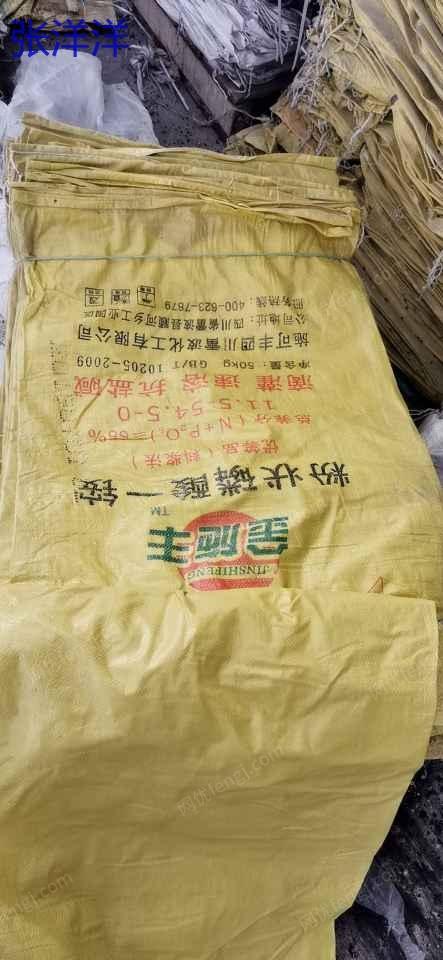 张洋洋
金施丰
JINSHIFENG
TM
粉状磷酸一铵
优等品（料浆法）
总养分（N+P₂O₅）=66%
11.5-54.5-0
滴灌 速溶 抗盐碱
净含量：50kg GB/T 10205-2009
施可丰四川雷波化工有限公司
公司地址：四川省雷波县顺河乡工业园区
服务热线：400-623-7879